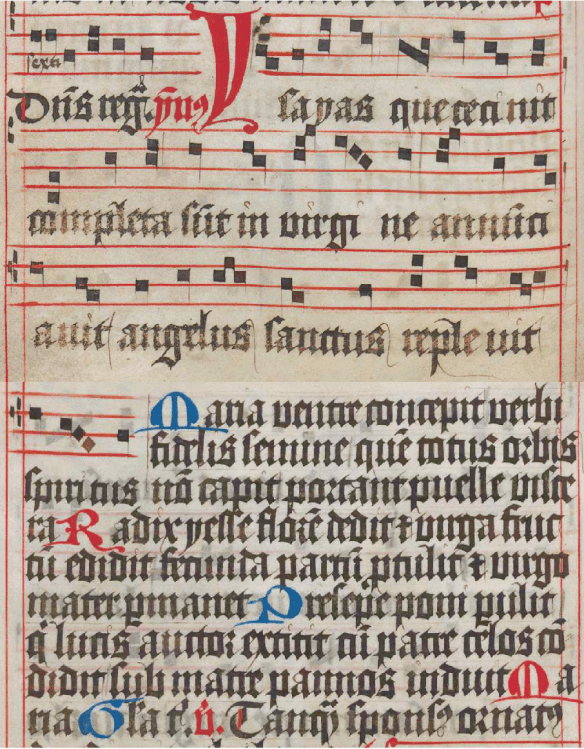 sexti
Dn̄s reg̃. ym̄9 Ysayas que ceci nit
completa sūt in virgi ne annūci
auit angelus sanctus reple uit
Maria ventre concepit verbi
fidelis semine quē totus orbis
spiritus nō capit portant puelle visce
ra Radix yesse florē dedit ⁊ virga fruc
tū edidit fecunda partū ꝓtulit ⁊ virgo
mater ꝑmanet Presepe poni ꝑtulit
q̄ lucis auctor extitit cū patre celos cō
didit sub matre pannos induit Ma
ria Gl̄a t'. v̄. Tanq̄ spons9 ornat9